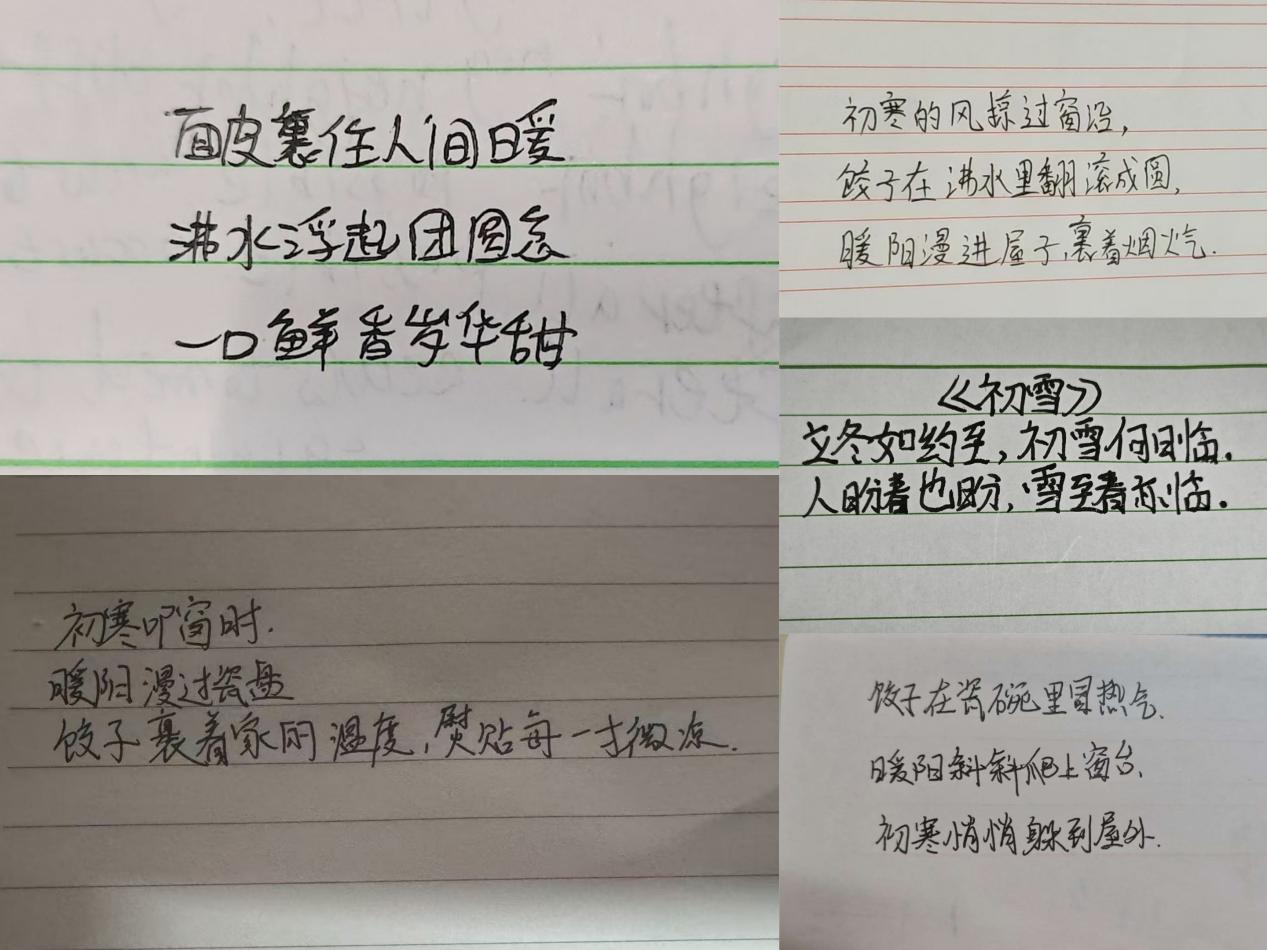 面皮裹住人间暖
沸水浮起团圆念
一口鲜香岁华甜
初寒的风掠过窗沿,
饺子在沸水里翻滚成圆,
暖阳漫进屋子,裹着烟火气.
《初雪》
立冬如约至,初雪何日临.
人盼着也盼,雪至着亦临.
初寒叩窗时.
暖阳漫过瓷盘
饺子裹着家的温度,熨贴每一寸微凉.
饺子在瓷碗里冒热气.
暖阳斜斜爬上窗台.
初寒悄悄躲到屋外.